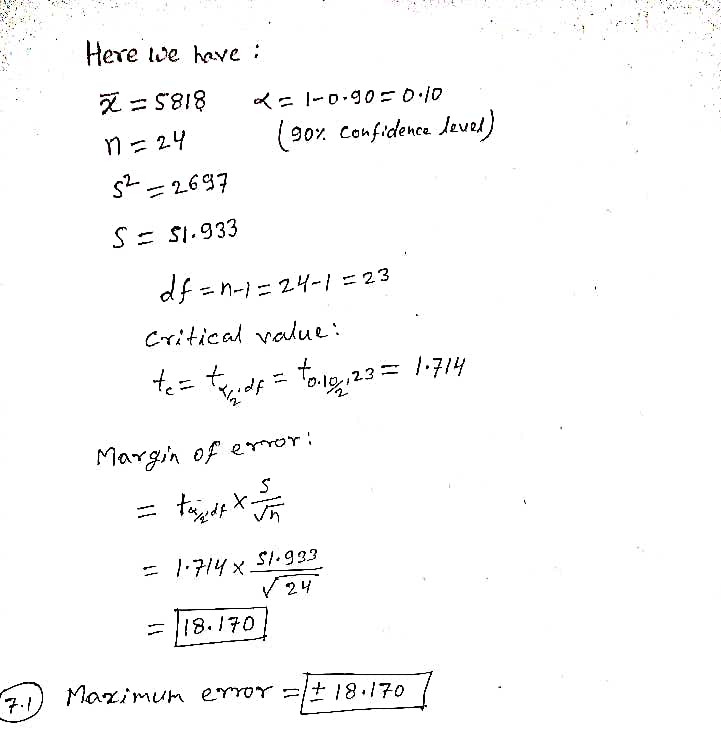 Here we have :
x̄ = 5818 α = 1-0.90 = 0.10
n = 24 (90% Confidence level)
s² = 2697
S = 51.933
df = n-1 = 24-1 = 23
Critical value:
tc = tα/2,df = t0.10/2,23 = 1.714
Margin of error:
= tα/2,df × S/√n
= 1.714 × 51.933/√24
= 18.170
7.1 Maximum error = ± 18.170